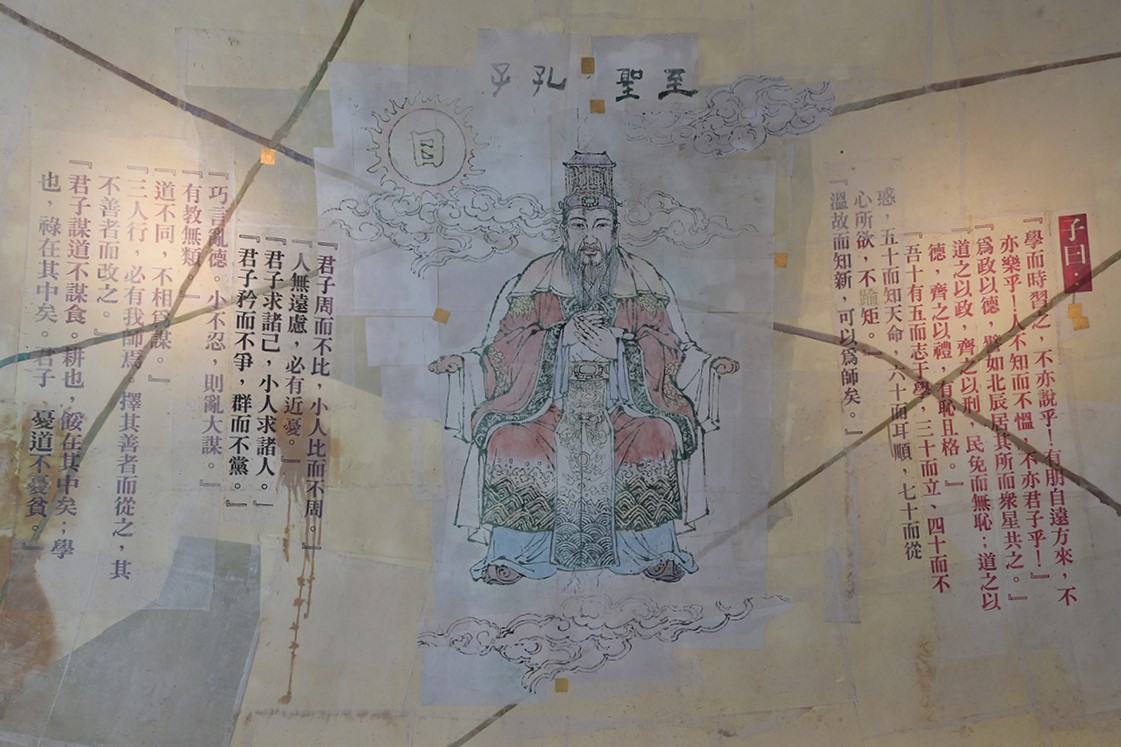 至聖孔子
目
子曰：
『學而時習之，不亦說乎！有朋自遠方來，不
亦樂乎！人不知而不慍，不亦君子乎！』
『爲政以德，譬如北辰居其所而衆星共之。』
『道之以政，齊之以刑，民免而無恥；道之以
德，齊之以禮，有恥且格。』
『吾十有五而志于學，三十而立、四十而不
惑，五十而知天命，六十而耳順，七十而從
心所欲，不踰矩。』
『溫故而知新，可以爲師矣。』
『君子周而不比，小人比而不周。』
『人無遠慮，必有近憂。』
『君子求諸己，小人求諸人。』
『君子矜而不爭，群而不黨。』
『巧言亂德。小不忍，則亂大謀。』
『有教無類。』
『道不同，不相爲謀。』
『三人行，必有我師焉。擇其善者而從之，其
不善者而改之。』
『君子謀道不謀食。耕也，餒在其中矣；學
也，祿在其中矣。君子憂道不憂貧。』